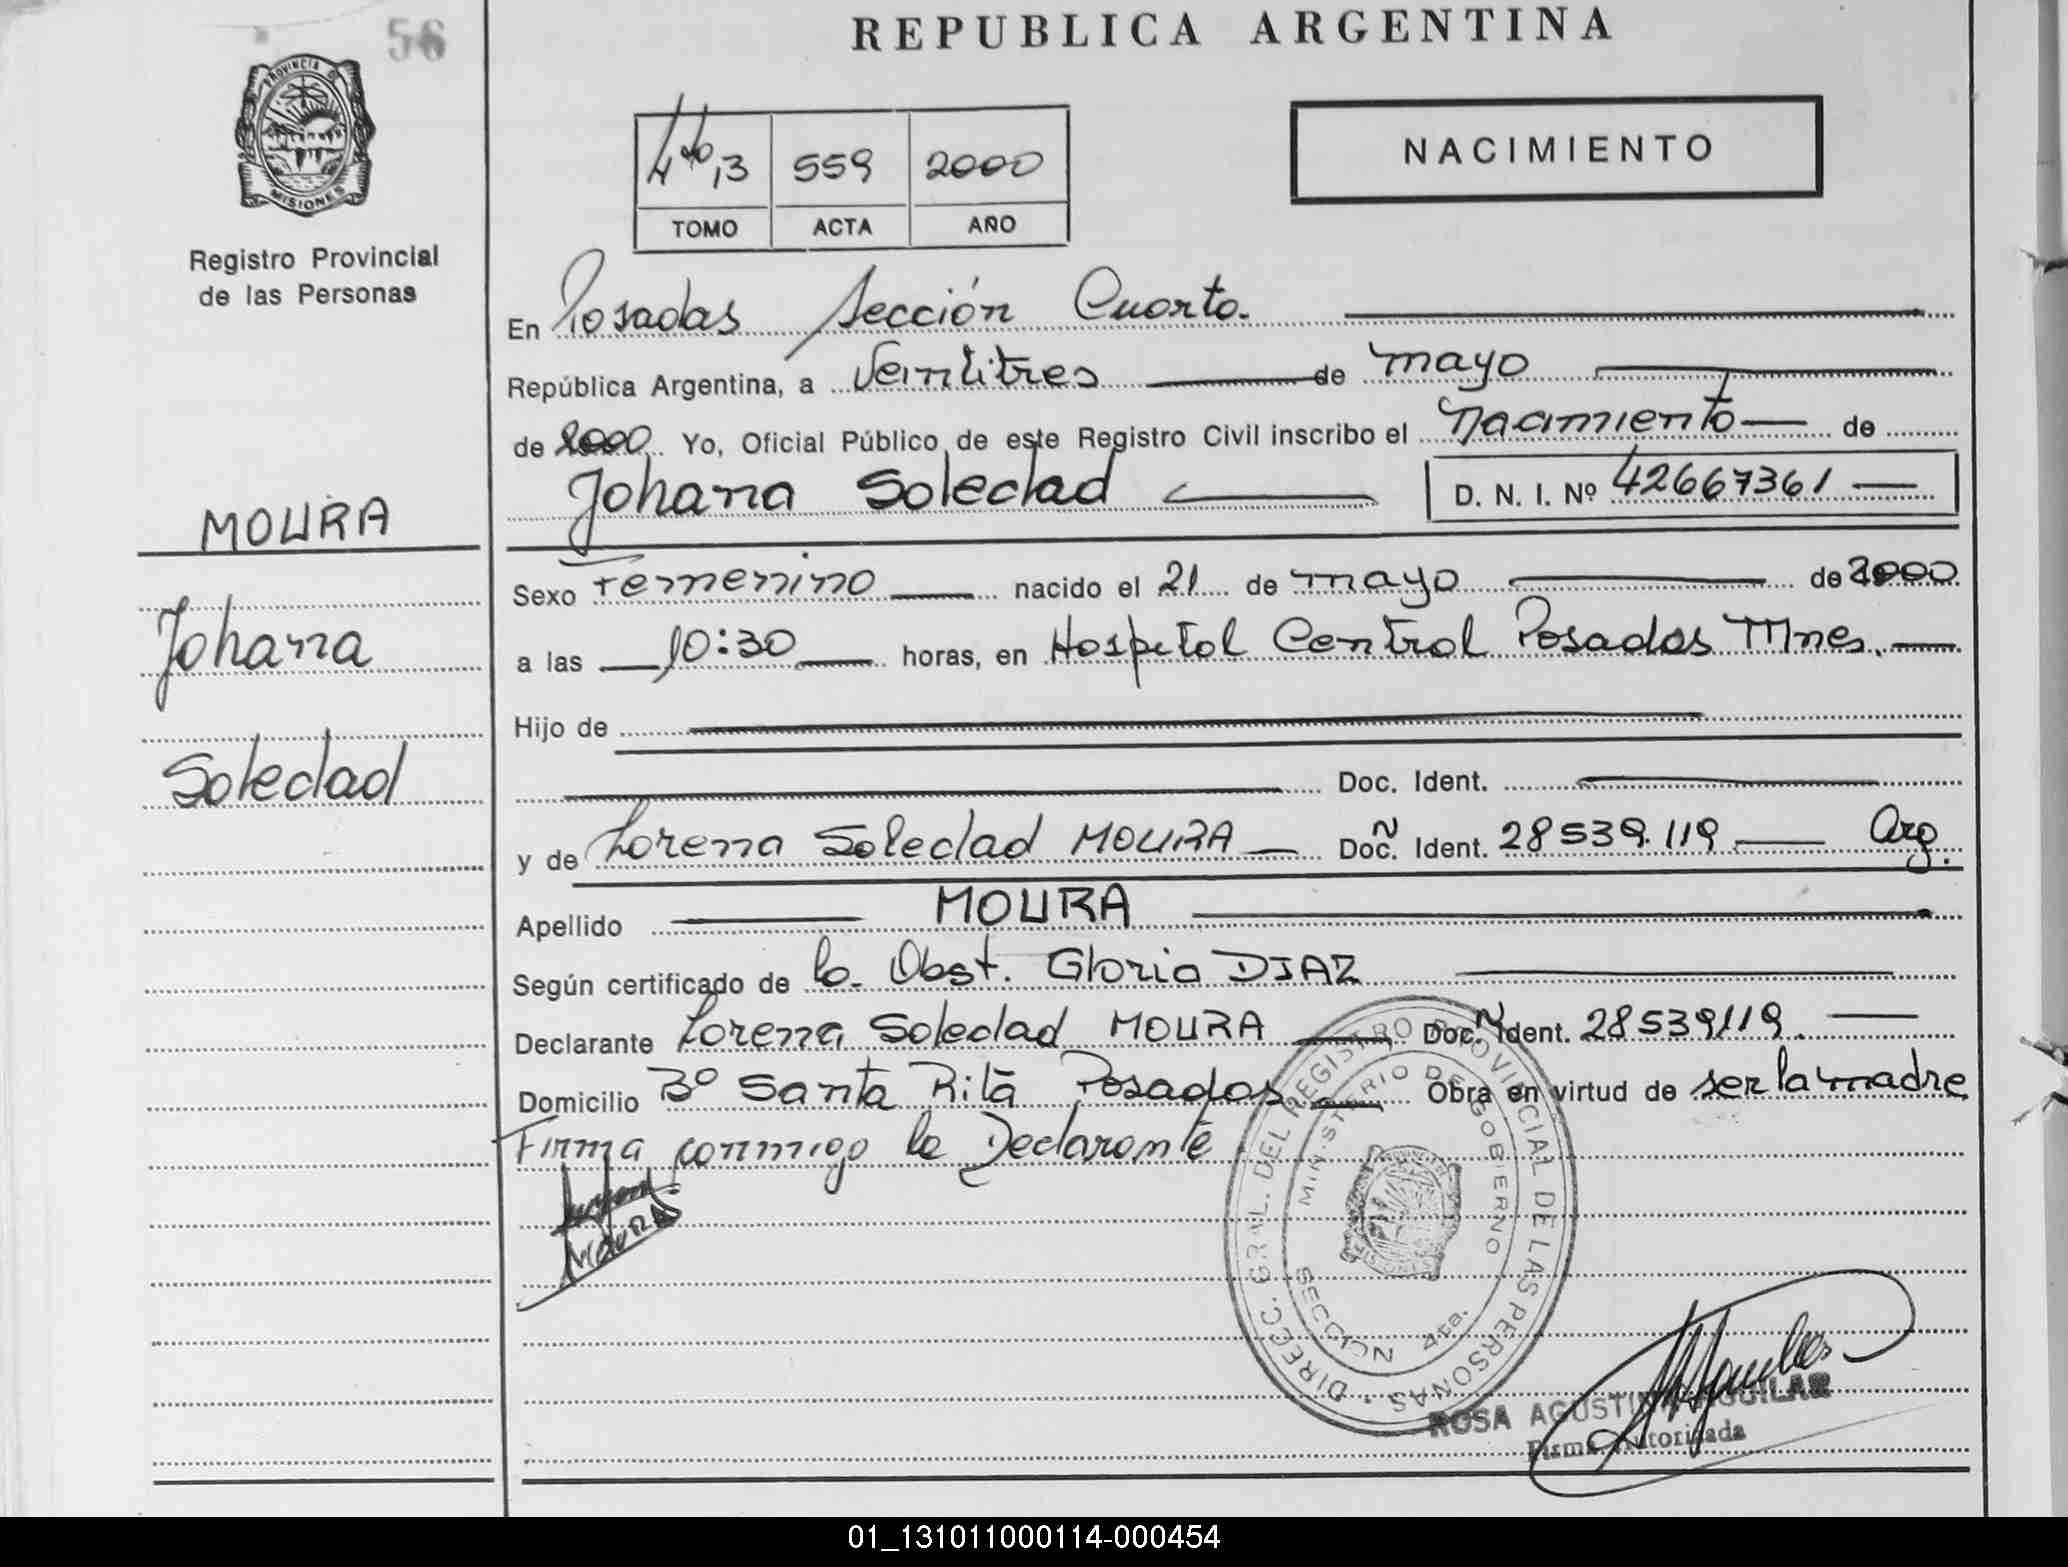 56
REPUBLICA ARGENTINA
PROVINCIA DE
MISIONES
Registro Provincial
de las Personas
559 2000
TOMO ACTA AÑO
NACIMIENTO
En Posadas Sección Cuarta.
República Argentina, a Veintitres de mayo
de 2000 Yo, Oficial Público de este Registro Civil inscribo el nacimiento de
Johana Soledad D. N. I. Nº 42667361
MOURA
Johana
Soledad
Sexo Femenino nacido el 21 de mayo de 2000
a las 10:30 horas, en Hospital Central Posadas Mnes.
Hijo de
Doc. Ident.
y de Lorena Soledad MOURA Doc. Ñ Ident. 28539.119 Arg.
Apellido MOURA
Según certificado de la Obst. Gloria DIAZ
Declarante Lorena Soledad MOURA Doc. Ñ Ident. 28539119.
Domicilio Bº Santa Rita Posadas Obra en virtud de ser la madre
Firma conmigo la Declarante
MOURA
DIRECC. GRAL. DEL REGISTRO PROVINCIAL DE LAS PERSONAS
MINISTERIO DE GOBIERNO
SECCION 4ta.
ROSA AGUSTINA AGUILAR
Firma Autorizada
01_131011000114-000454